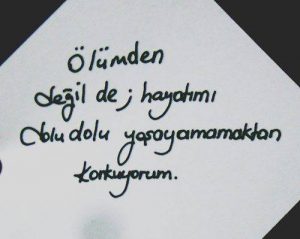 Ölümden
değil de ; hayatımı
dolu dolu yaşayamamaktan
korkuyorum.